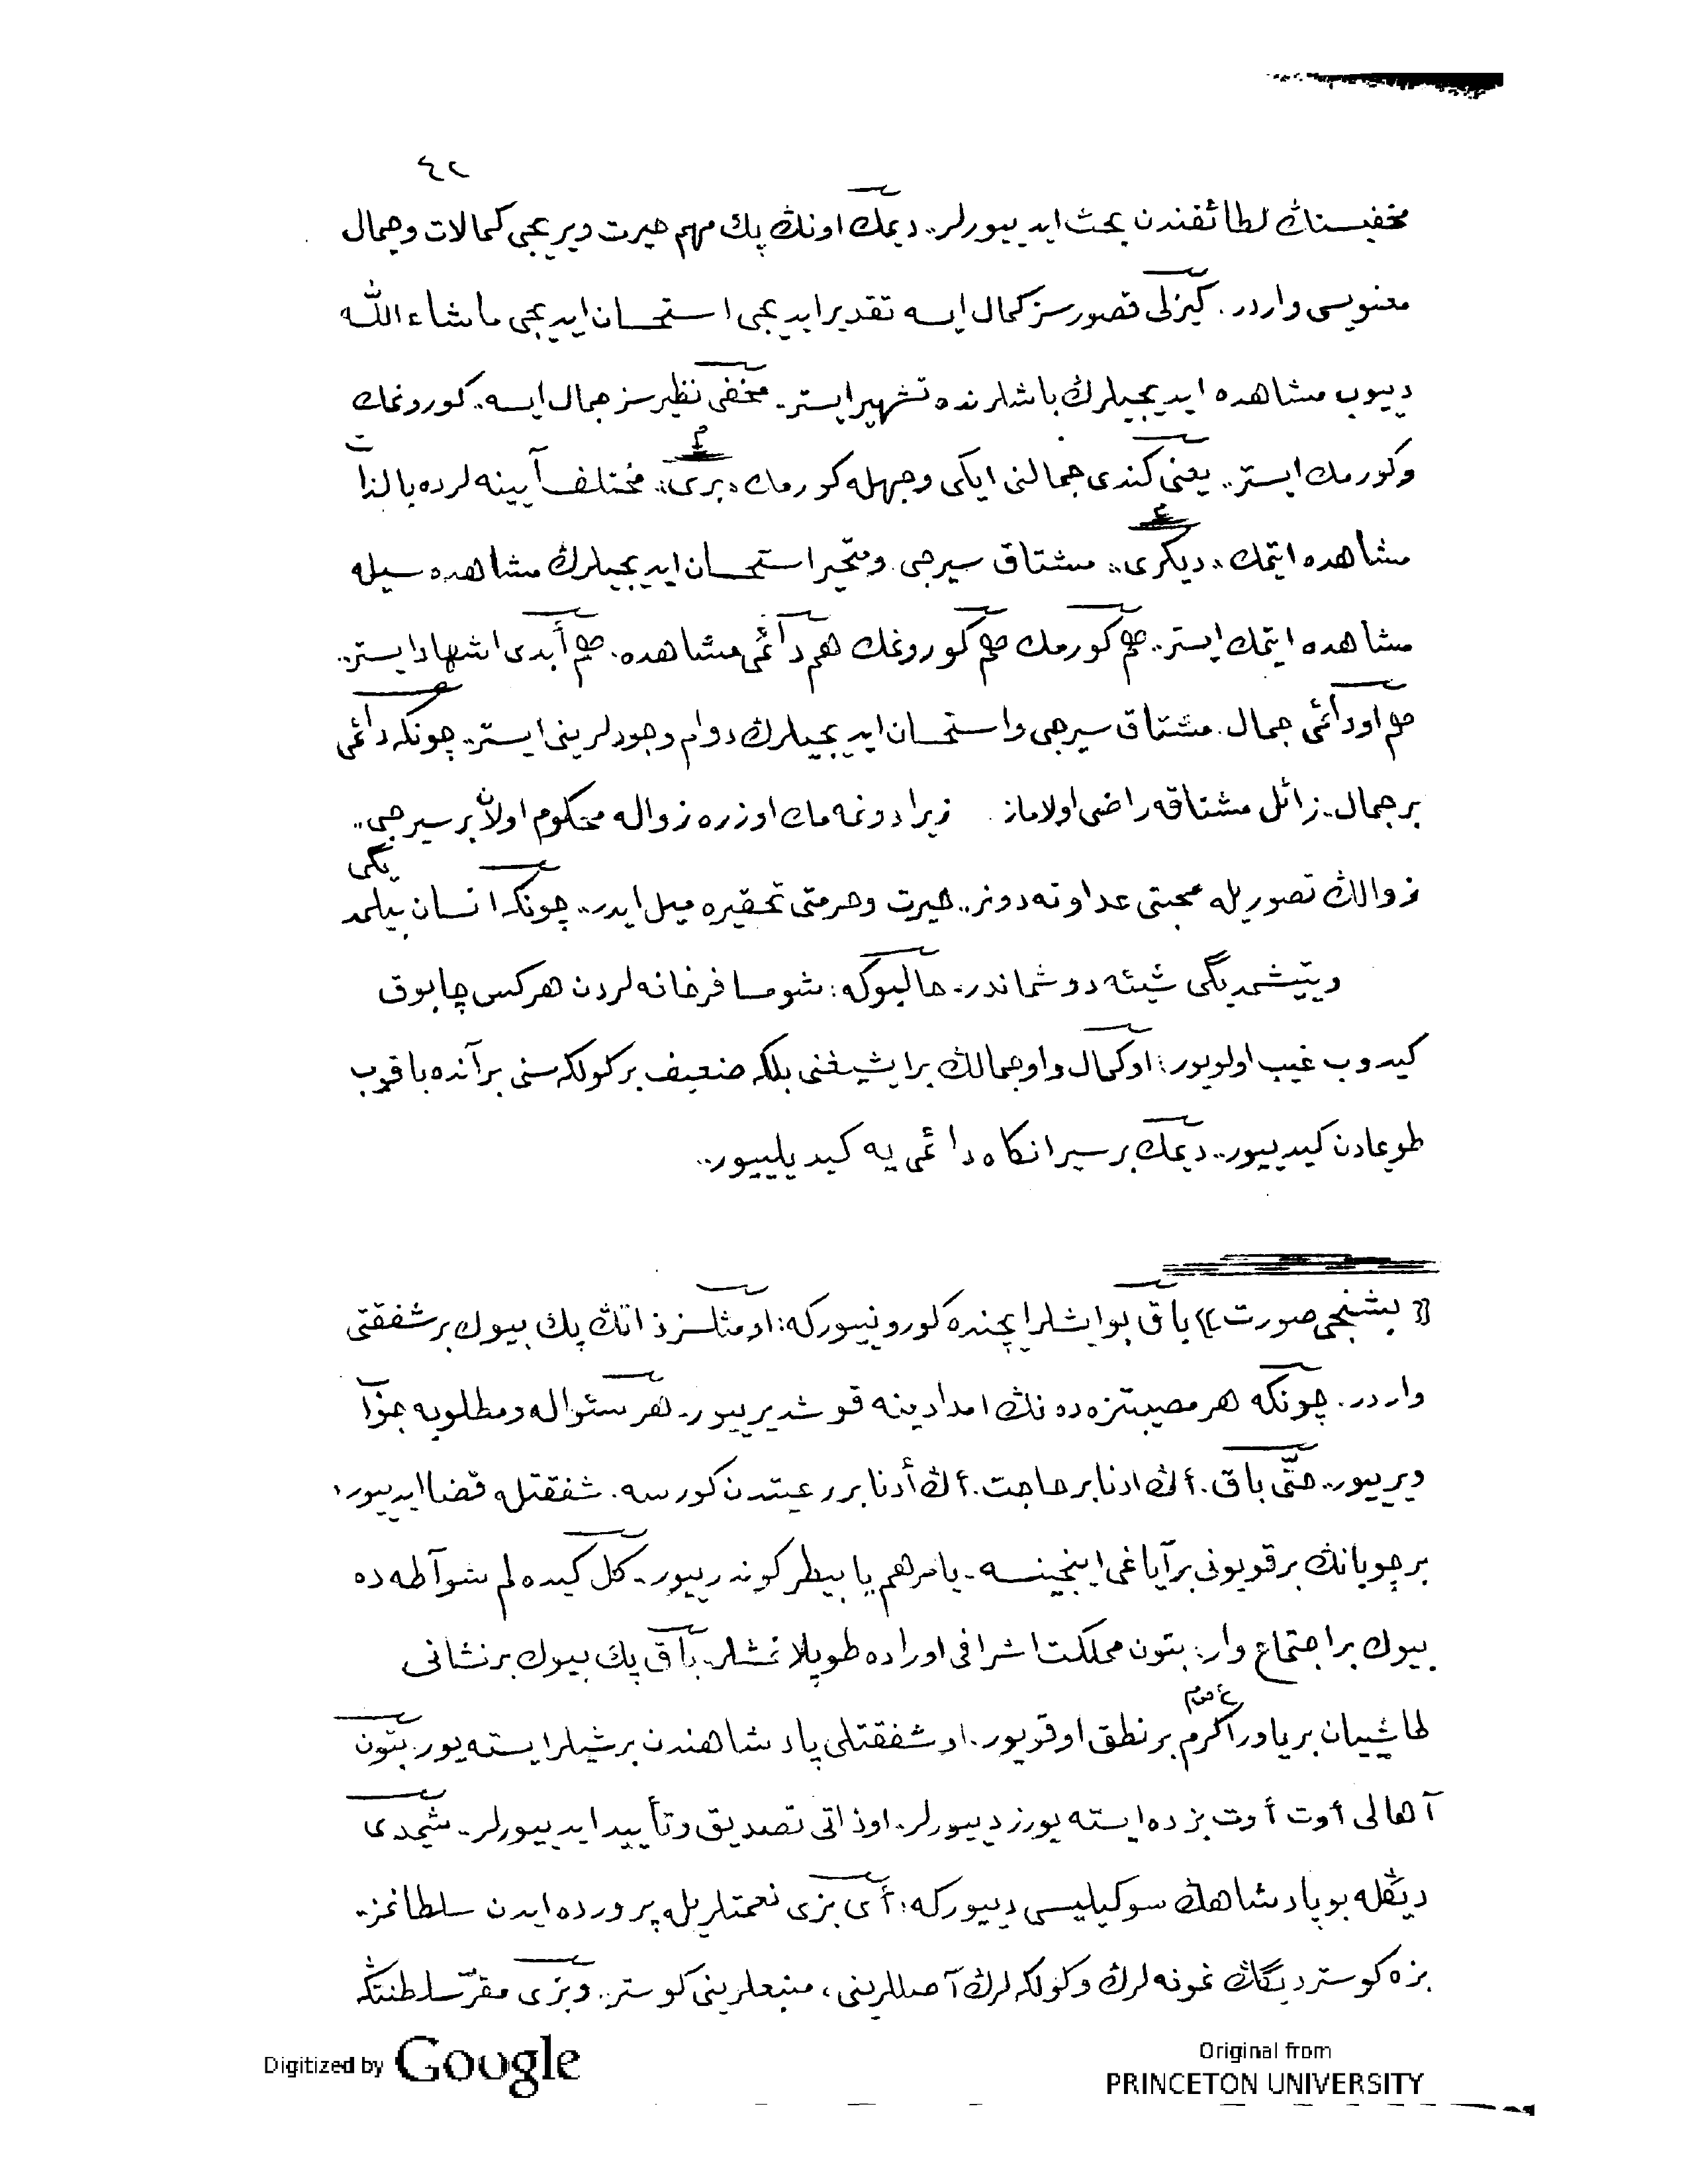 ٤٢
مخفيسنك لطائفندن بحث ايدييورلر.. ديمك اونك پك مهم حيرت ويريجى كمالات وجمال
معنويسى واردر. كيزلى قصورسز كمال ايسه تقدير ايديجى استحسان ايديجى ماشاء الله
دييوب مشاهده ايديجيلرك باشلرنده تشهير ايستر.. مخفى نظيرسز جمال ايسه.. كورونمك
وكورمك ايستر.. يعنى كندى جمالنى ايكى وجهله كورمك «برى» مختلف آيينه لرده بالذات
مشاهده ايتمك «ديگرى» مشتاق سيرجى ومتحير استحسان ايديجيلرك مشاهده سيله
مشاهده ايتمك ايستر.. هم كورمك هم كورونمك هم دائمى مشاهده. هم أبدى اشهاد ايستر..
هم او دائمى جمال. مشتاق سيرجى واستحسان ايديجيلرك دوام وجودلرينى ايستر.. چونكه دائمى
بر جمال.. زائل مشتاقه راضى اولاماز. زيرا دونمه مك اوزره زواله محكوم اولان بر سيرجى..
زوالك تصوريله محبتى عداوته دونر.. حيرت وحرمتى تحقيره ميل ايدر.. چونكه انسان بيلمديگى
ويتيشمديگى شيئه دوشماندر.. حالبوكه: شو مسافرخانه لردن هركس چابوق
كيدوب غيب اولويور: او كمال واو جمالك بر ايشيغنى بلكه ضعيف بر كولكه سنى بر آنده باقوب
طويمادن كيدييور.. ديمك بر سيرانكاه دائمى يه كيديلييور..
« بشنجى صورت » باق بو ايشلر ايچنده كورونييوركه: او مثلسز ذاتك پك بيوك بر شفقتى
واردر. چونكه هر مصيبتزده نك امدادينه قوشديرييور.. هر سئواله ومطلوبه جواب
ويرييور.. حتّى باق. أك ادنا بر حاجت. أك أدنا بر رعيتدن كورسه. شفقتله قضا ايدييور.
بر چوبانك بر قويونى بر آياغى اينجينسه.. يا مرهم يا بيطر كوندرييور.. كل كيده لم شو آطه ده
بيوك بر اجتماع وار: بتون مملكت اشرافى اوراده طوپلانمشلر. باق پك بيوك بر نشانى
طاشييان بر ياور اكرم بر نطق اوقويور. او شفقتلى پادشاهندن بر شيلر ايسته يور. بتون
آهالى أوت أوت بزده ايسته يورز دييورلر. او ذاتى تصديق وتأييد ايدييورلر.. شيمدى
ديڭله بو پادشاهك سوكيليسى دييوركه: أى بزى نعمتلريله پرورده ايدن سلطانمز..
بزه كوسترديگك نمونه لرك وكولكه لرك آصللرينى، منبعلرينى كوستر.. وبزى مقرّ سلطنتكه
Digitized by Google
Original from
PRINCETON UNIVERSITY